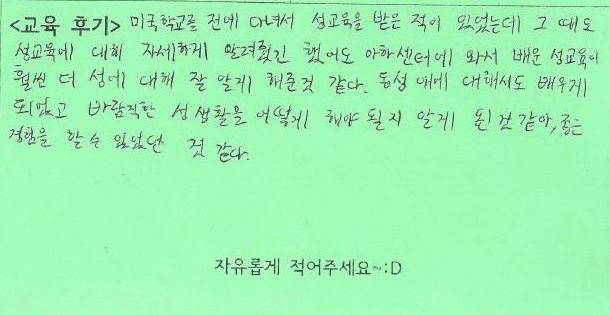 <교육 후기> 미국학교를 전에 다녀서 성교육을 받은 적이 있었는데 그 때도
성교육에 대해 자세하게 알려줬긴 했어도 아하센터에 와서 배운 성교육이
훨씬 더 성에 대해 잘 알게 해준것 같다. 동성애에 대해서도 배우게
되었고 바람직한 성생활을 어떻게 해야 될지 알게 된 것 같아, 좋은
경험을 할 수 있었던 것 같다.
자유롭게 적어주세요~:D